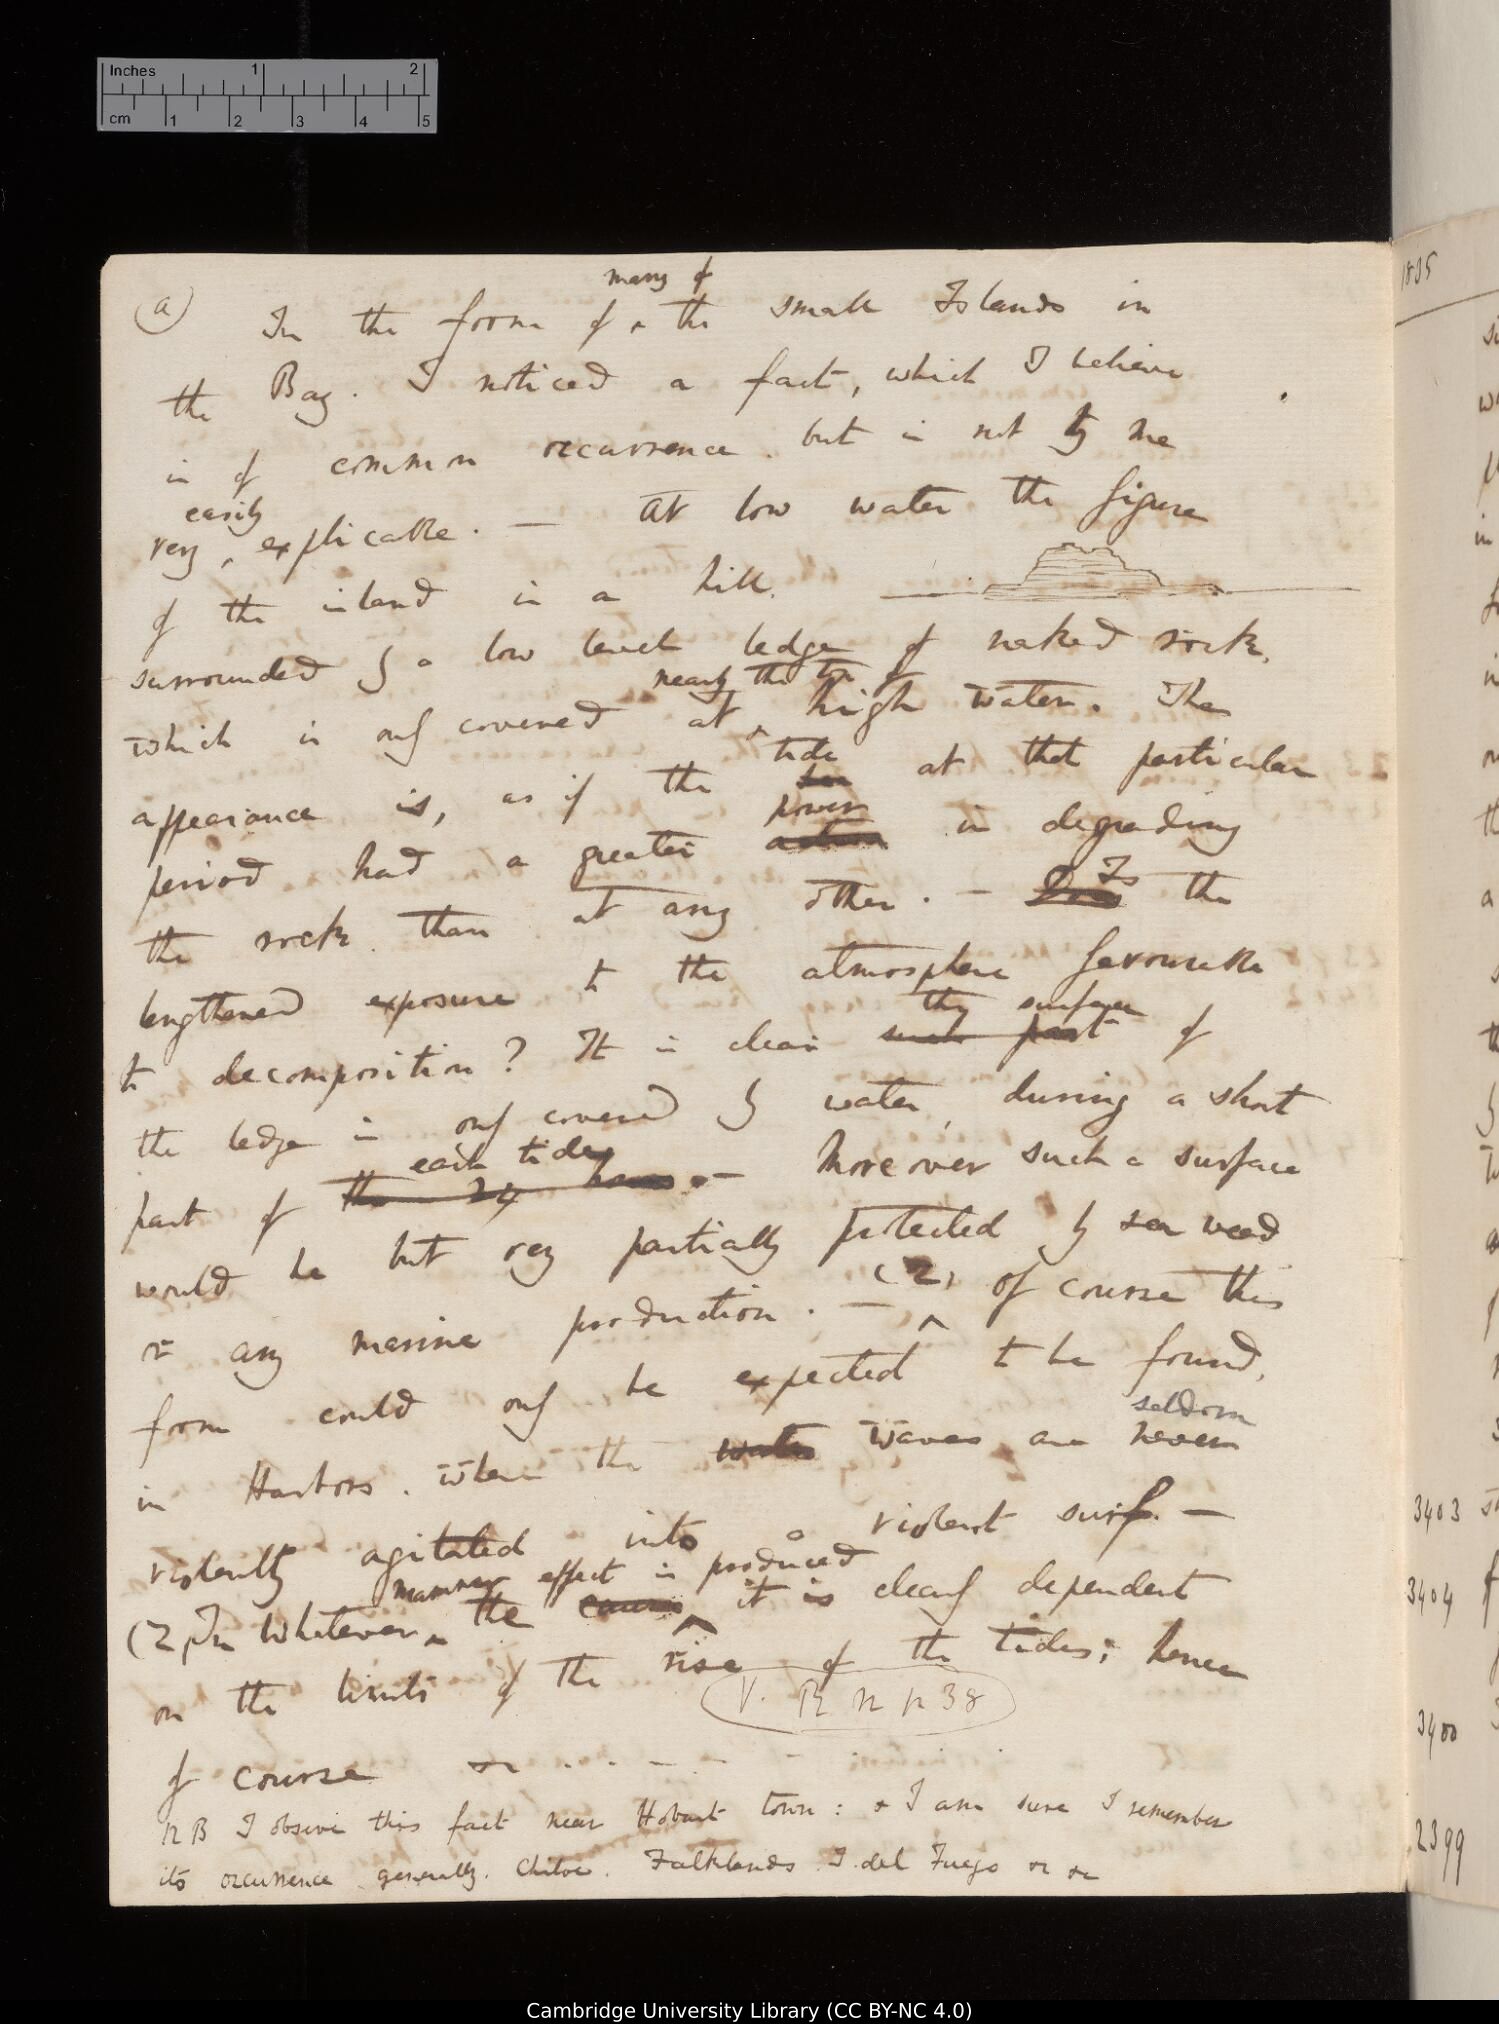 Inches 1 2
cm 1 2 3 4 5
(a)
many of
In the form of ^ the small Islands in
the Bay. I noticed a fact, which I believe
is of common occurrence. but is not to me
easily
very ^ explicable. — At low water the figure
of the island is a hill.
surrounded by a low level ledge of naked rock,
nearly the top of
which is only covered at ^ high water. The
tide
appearance is, as if the sea at that particular
power
period had a greater action in degrading
Is
the rock than at any other. — Does the
lengthened exposure to the atmosphere favourable
the surface
to decomposition? It is clear such part of
the ledge is only covered by water, during a short
each tide
part of the 24 hours. — Moreover such a surface
would be but very partially protected by sea weed
or any marine production. — (2) of course this
^
form could only be expected to be found,
seldom
in Harbors. where the water waves are never
violently agitated into a violent surf. —
manner effect is produced
(2) In whatever ^ the cause ^ it is clearly dependent
on the limits of the rise of the tides; hence
V. R N p 38
of course &c . . — — - . .
NB I observe this fact near Hobart town: & I am sure I remember
its occurrence generally. Chiloe. Falklands. T. del Fuego &c &c
1835
3403
3404
3400
2399
Cambridge University Library (CC BY-NC 4.0)